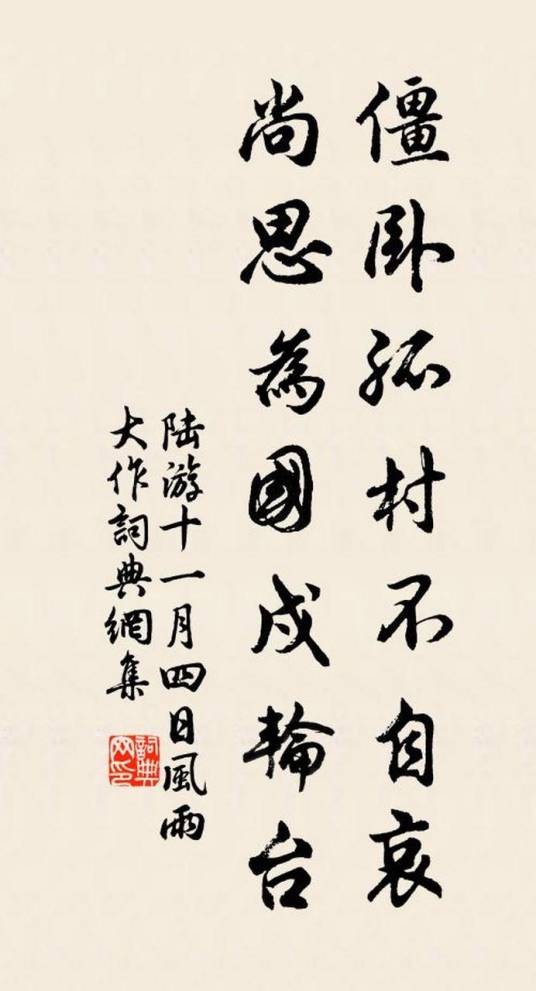 僵卧孤村不自哀
尚思為國戍輪台
陸游十一月四日風雨
大作詞典網集
詞典
网印